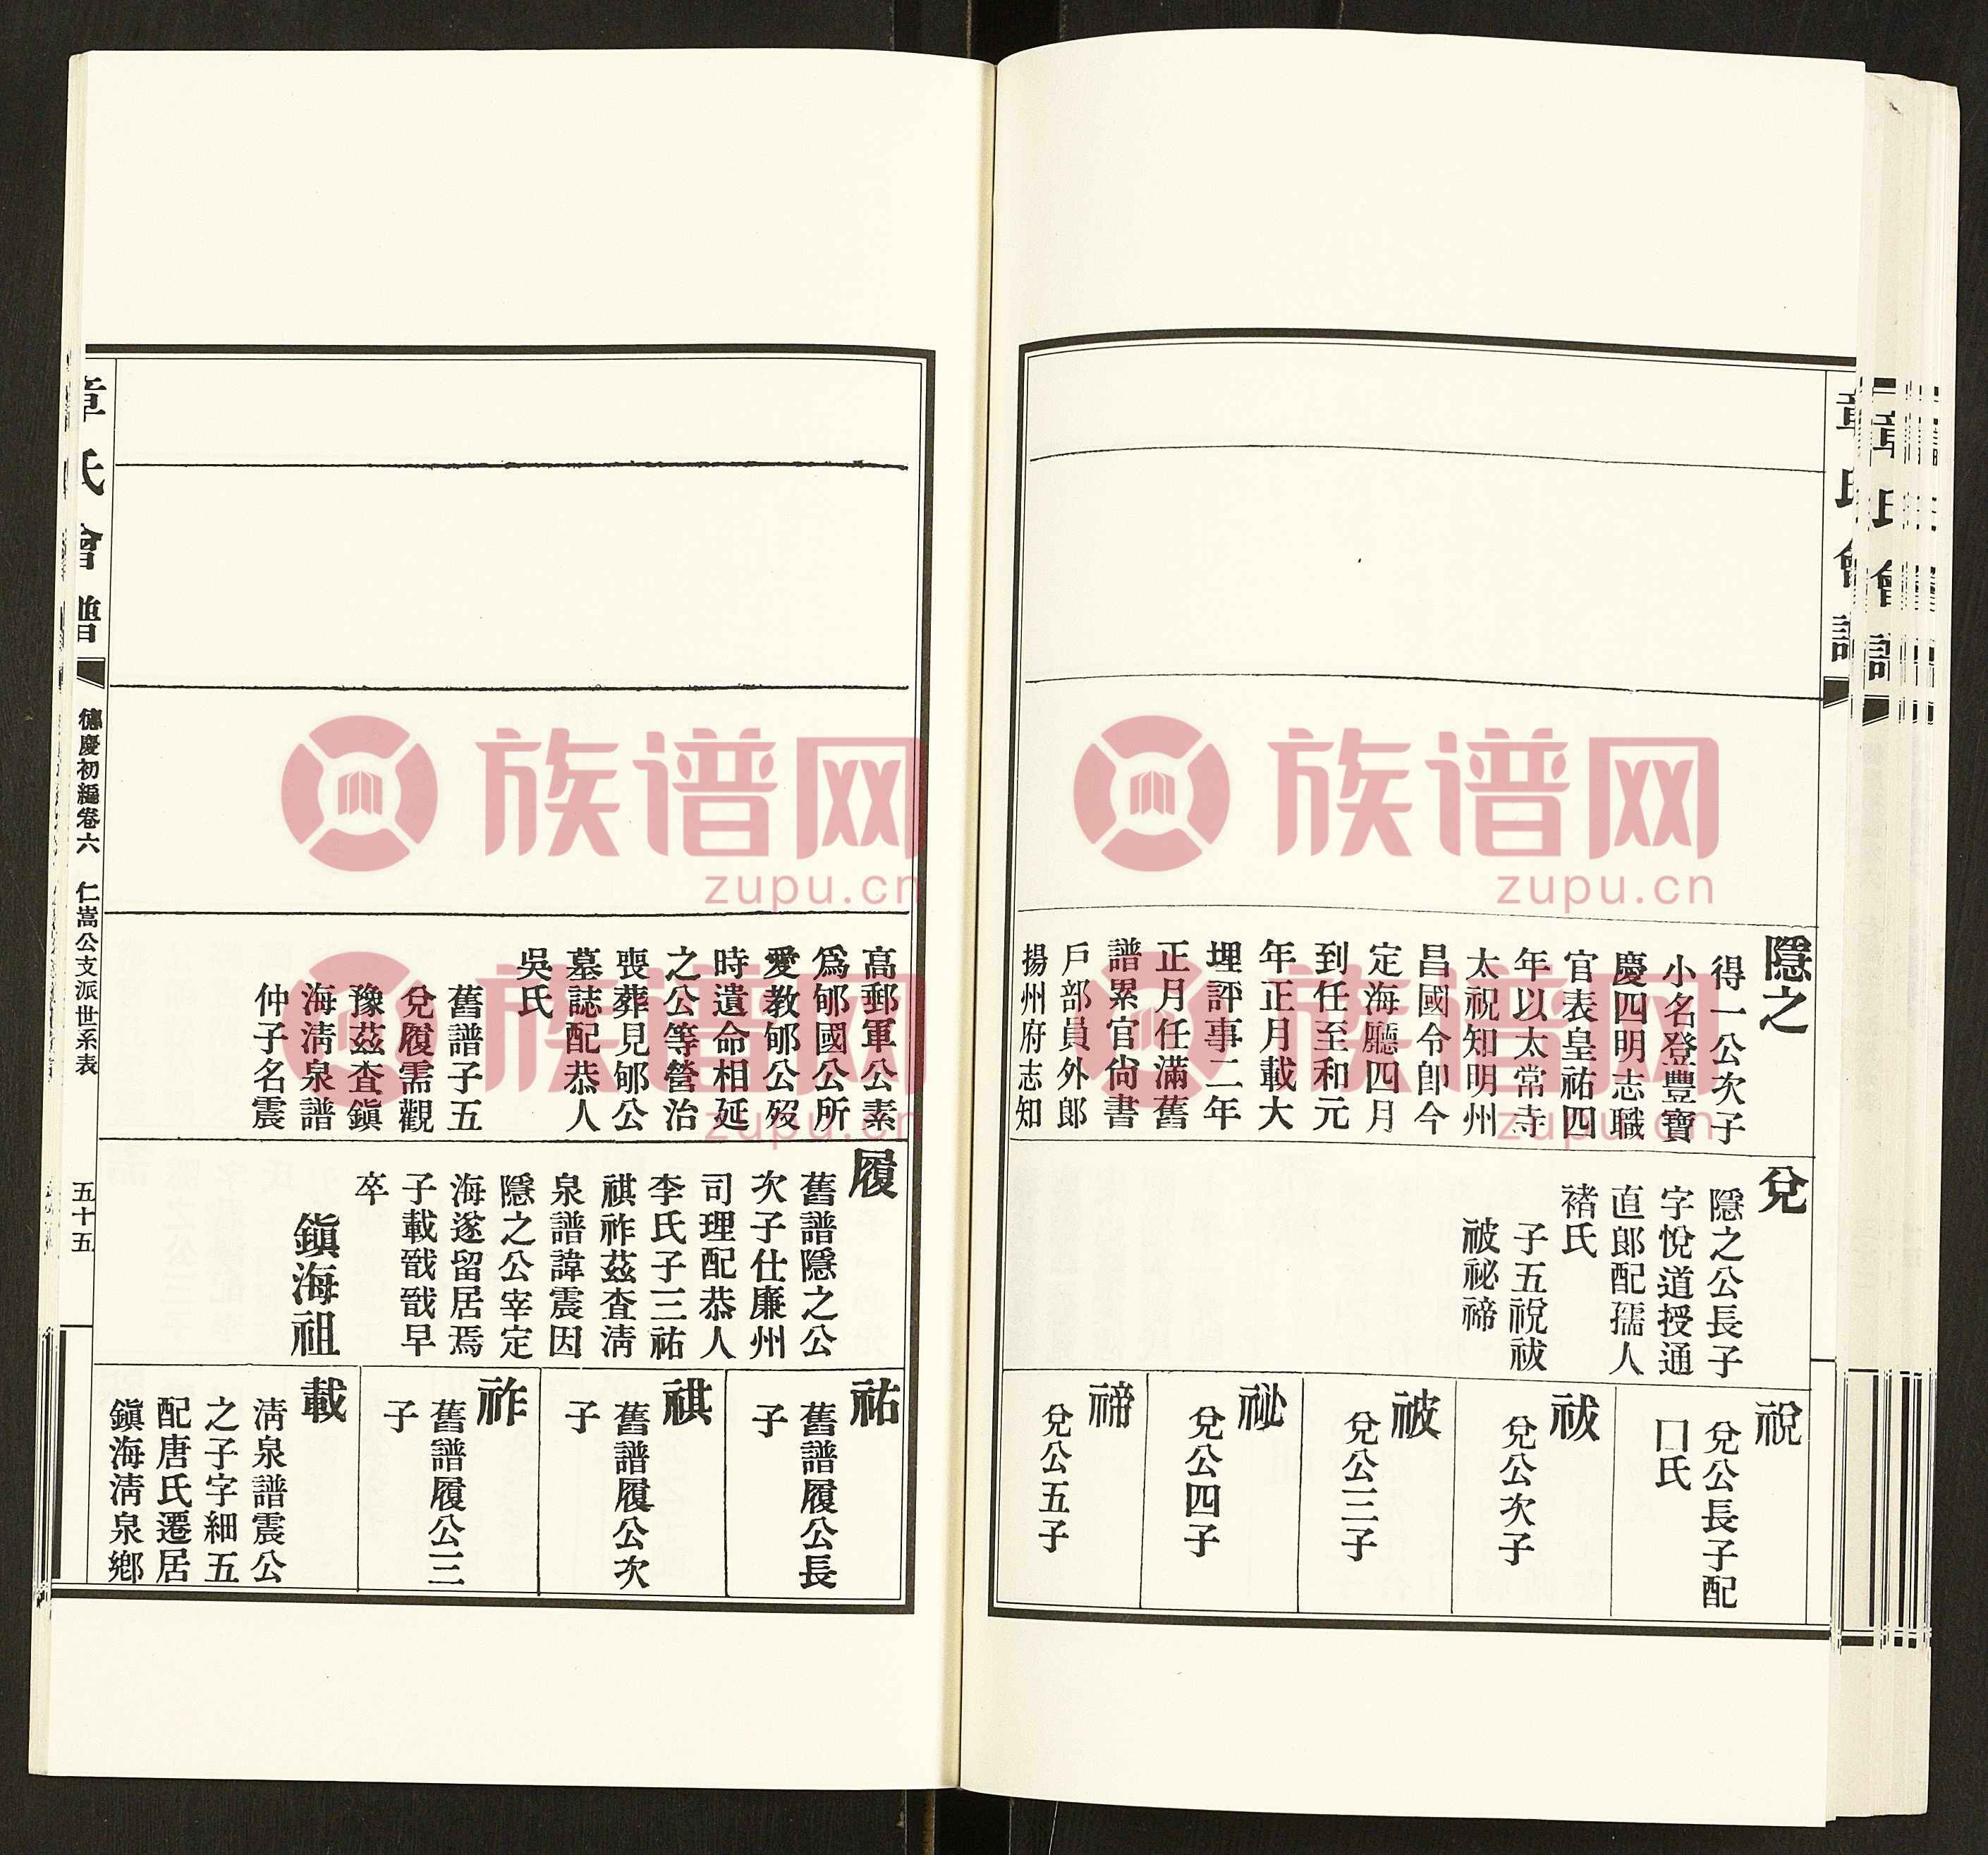 隱之
得一公次子
小名登豐寶
慶四明志職
官表皇祐四
年以太常寺
太祝知明州
昌國令卽今
定海廳四月
到任至和元
年正月載大
理評事二年
正月任滿舊
譜累官尙書
戶部員外郞
揚州府志知
兌
隱之公長子
字悅道授通
直郞配孺人
褚氏
子五祝祓
被祕禘
祝
兌公長子配
口氏
祓
兌公次子
被
兌公三子
祕
兌公四子
禘
兌公五子
高郵軍公素
爲郇國公所
愛教郇公歿
時遺命相延
之公等營治
喪葬見郇公
墓誌配恭人
吳氏
舊譜子五
兌履需觀
豫茲查鎭
海淸泉譜
仲子名震
履
舊譜隱之公
次子仕廉州
司理配恭人
李氏子三祐
祺祚茲查淸
泉譜諱震因
隱之公宰定
海遂留居焉
子載戩戩早
卒
鎭海祖
祐
舊譜履公長
子
祺
舊譜履公次
子
祚
舊譜履公三
子
載
淸泉譜震公
之子字細五
配唐氏遷居
鎭海淸泉鄕
章氏會譜
德慶初編卷六 仁嵩公支派世系表
五十五
章氏會譜
族谱网
zupu.cn
族谱网
zupu.cn
族谱网
zupu.cn
族谱网
zupu.cn